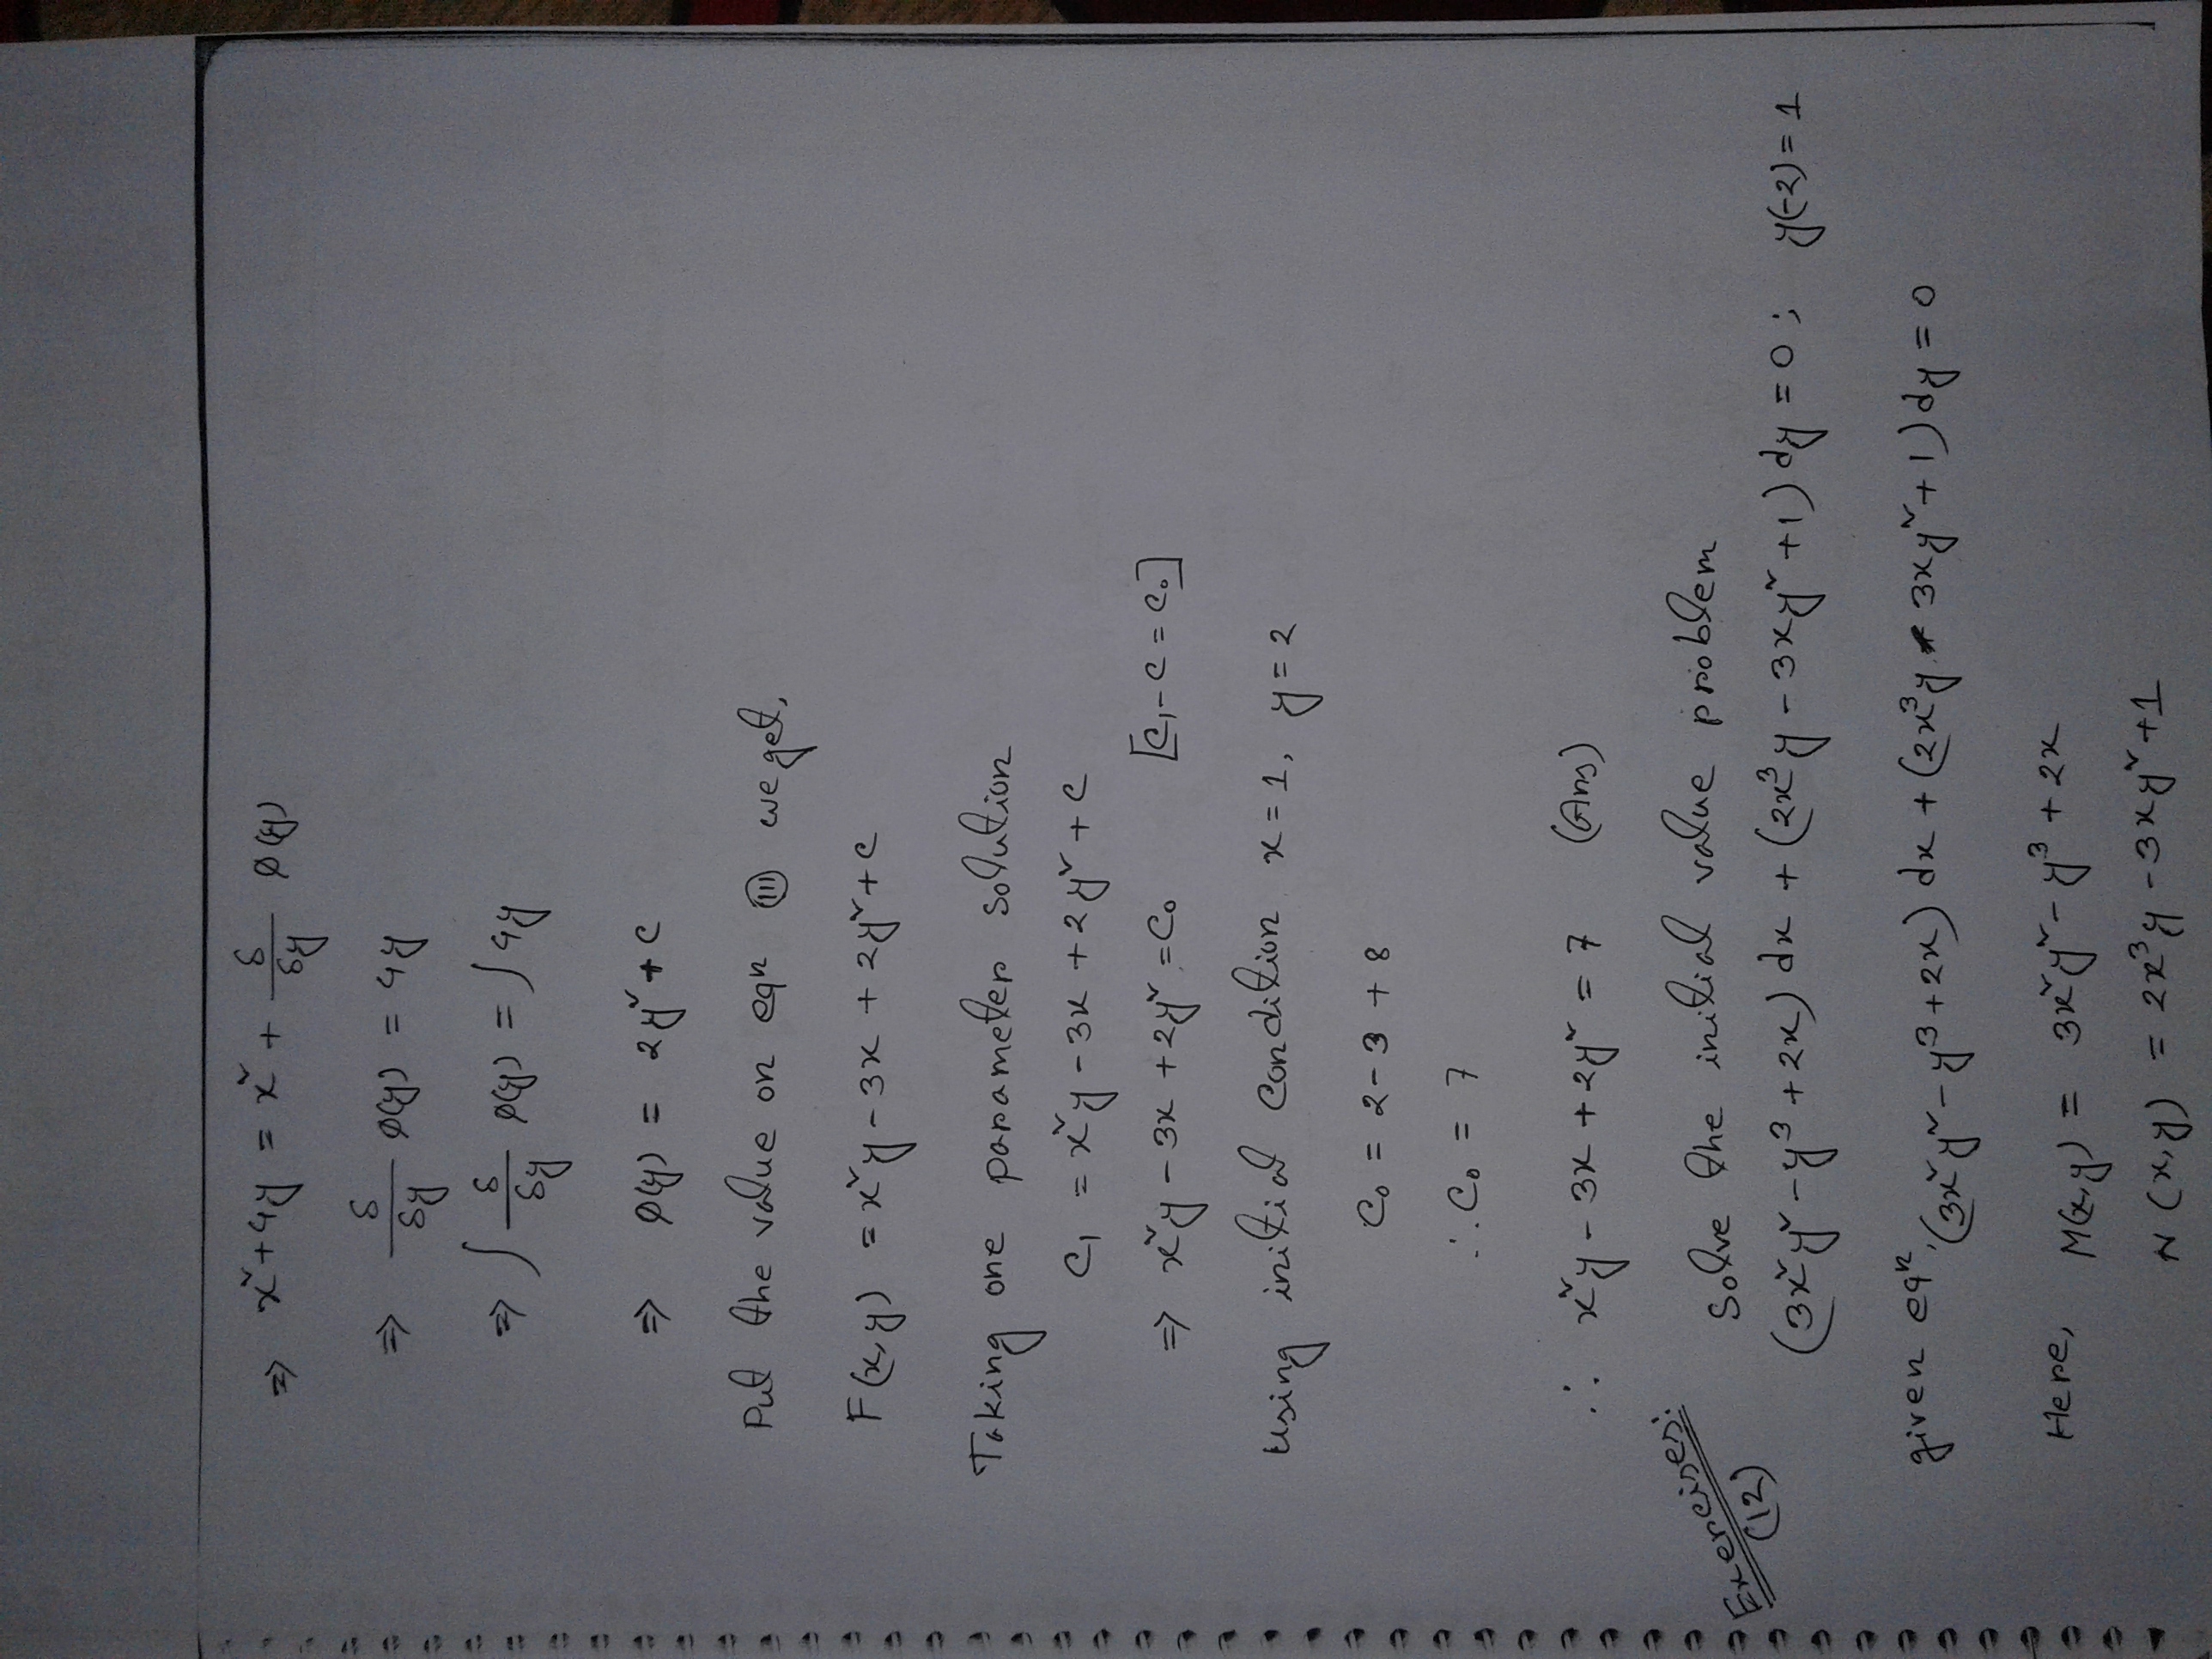 ⇒ x² + 4y = x² + δ/δy φ(y)
⇒ δ/δy φ(y) = 4y
⇒ ∫ δ/δy φ(y) = ∫ 4y
⇒ φ(y) = 2y² + c
Put the value on eqn (III) we get,
F(x,y) = x²y - 3x + 2y² + c
Taking one parameter solution
C₁ = x²y - 3x + 2y² + c
⇒ x²y - 3x + 2y² = C₀ [C₁ - c = C₀]
Using initial condition x = 1, y = 2
C₀ = 2 - 3 + 8
∴ C₀ = 7
∴ x²y - 3x + 2y² = 7 (Ans)
Exercises:
(12) Solve the initial value problem
(3x²y² - y³ + 2x) dx + (2x³y - 3xy² + 1) dy = 0 ; y(-2) = 1
given eqn, (3x²y² - y³ + 2x) dx + (2x³y - 3xy² + 1) dy = 0
Here, M(x,y) = 3x²y² - y³ + 2x
N(x,y) = 2x³y - 3xy² + 1